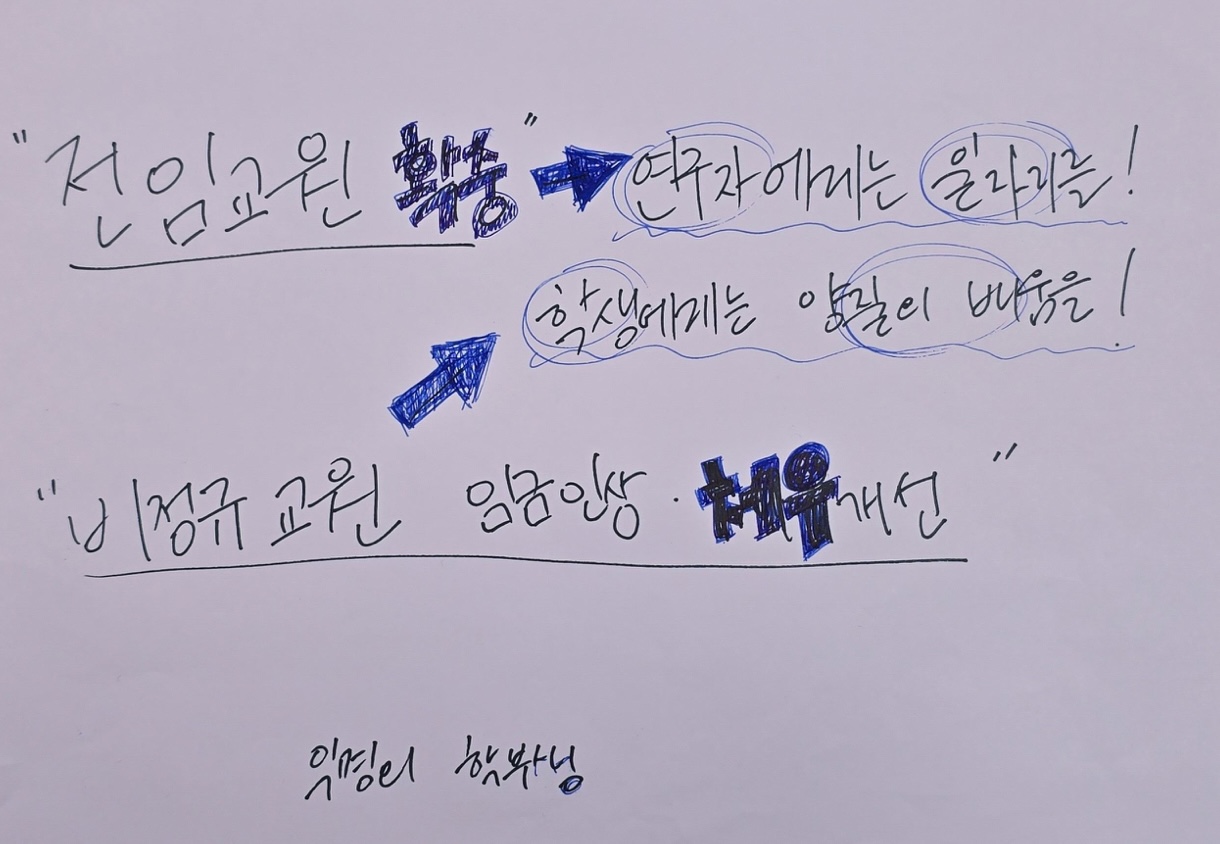 "전임교원 확충" → 연구자에게는 일자리를!
학생에게는 양질의 배움을!
"비정규교원 임금인상 · 처우개선"
익명의 학부생